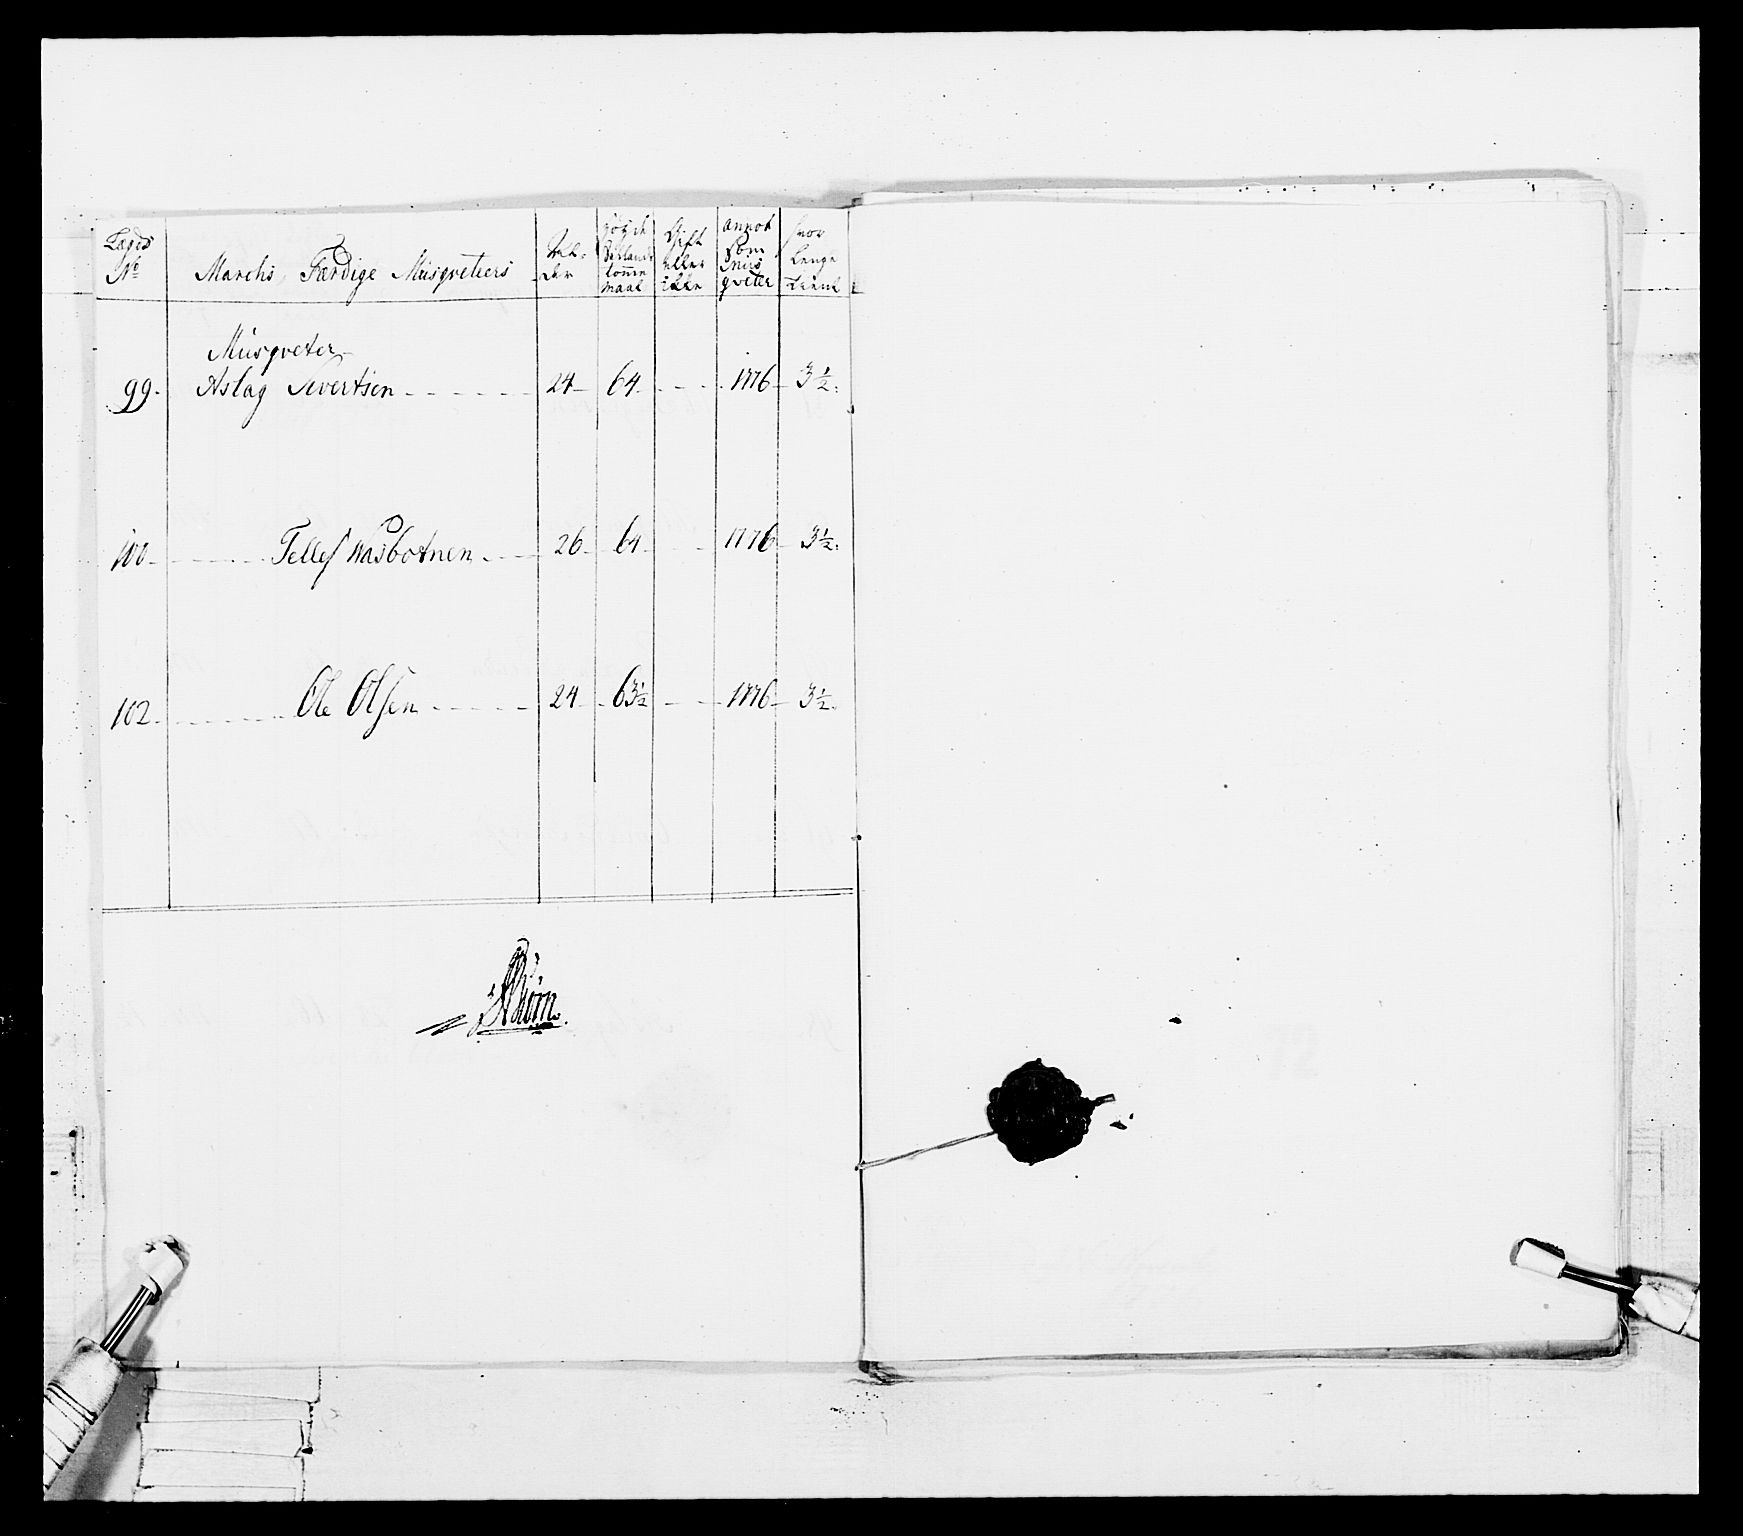 Lægds No Marchs Færdige Musqvetiers Al-der Høyde Siellands tomme maal Gift eller ikke annot som Mus qveter hvor lenge tient
Musqveter
99. Aslag Sivertsen 24 64 1776 3 ½
100 Tellef Waasbotnen 26 64 1776 3 ½
102 Ole Olsen 24 63½ 1776 3 ½